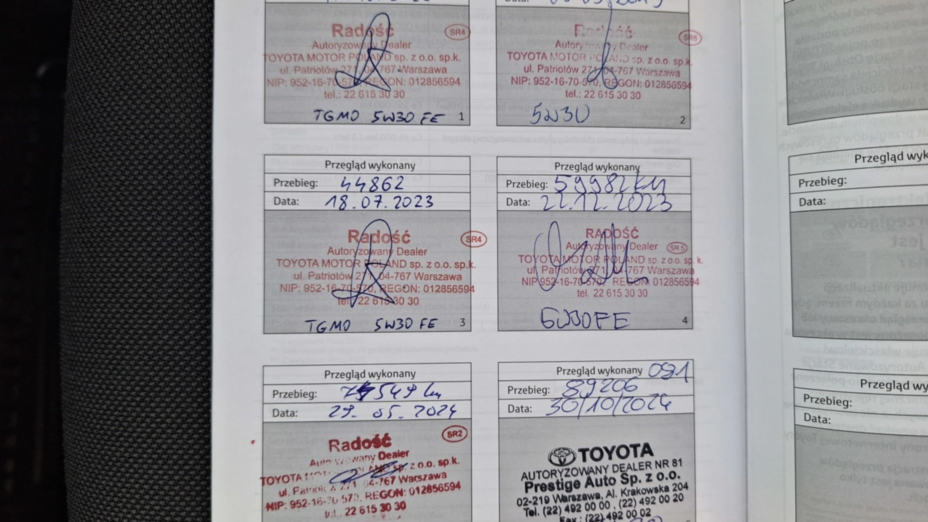 Radość SR4
Autoryzowany Dealer
TOYOTA MOTOR POLAND sp. z o.o. sp.k.
ul. Patriotów 271, 04-767 Warszawa
NIP: 952-16-70- REGON: 012856594
tel.: 22 615 30 30
TGMO 5W30 FE 1
Data:
Radość
Autoryzowany Dealer
TOYOTA MOTOR POLAND sp. z o.o. sp.k.
ul. Patriotów 271, 04-767 Warszawa
NIP: 952-16-70- REGON: 012856594
tel.: 22 615 30 30
5W30 2
Przegląd wykonany
Przebieg: 44862
Data: 18.07.2023
Radość SR4
Autoryzowany Dealer
TOYOTA MOTOR POLAND sp. z o.o. sp.k.
ul. Patriotów 271, 04-767 Warszawa
NIP: 952-16-70-570, REGON: 012856594
tel.: 22 615 30 30
TGMO 5W30 FE 3
Przegląd wykonany
Przebieg: 59982 km
Data: 22.12.2023
RADOŚĆ
Autoryzowany Dealer SR5
TOYOTA MOTOR POLAND sp. z o.o. sp.k.
ul. Patriotów 271, 04-767 Warszawa
NIP: 952-16-70-570, REGON: 012856594
tel. 22 615 30 30
4
Przegląd wykonany
Przebieg: 549 km
Data: 29.05.2024
Radość SR2
Dealer
TOYOTA sp. z o.o. sp.k.
ul. 271, 04-767 Warszawa
NIP: 952-16-70-570, REGON: 012856594
tel. 22 615 30 30
Przegląd wykonany 081
Przebieg: 89206
Data: 30/10/2024
TOYOTA
AUTORYZOWANY DEALER NR 81
Prestige Auto Sp. z o.o.
02-219 Warszawa, Al. Krakowska 204
Tel. (22) 492 00 00, (22) 492 00 20
Fax: (22) 492 00 02
Przegląd wyk
Przebieg:
Data:
Przegląd wyk
Przebieg:
Data: